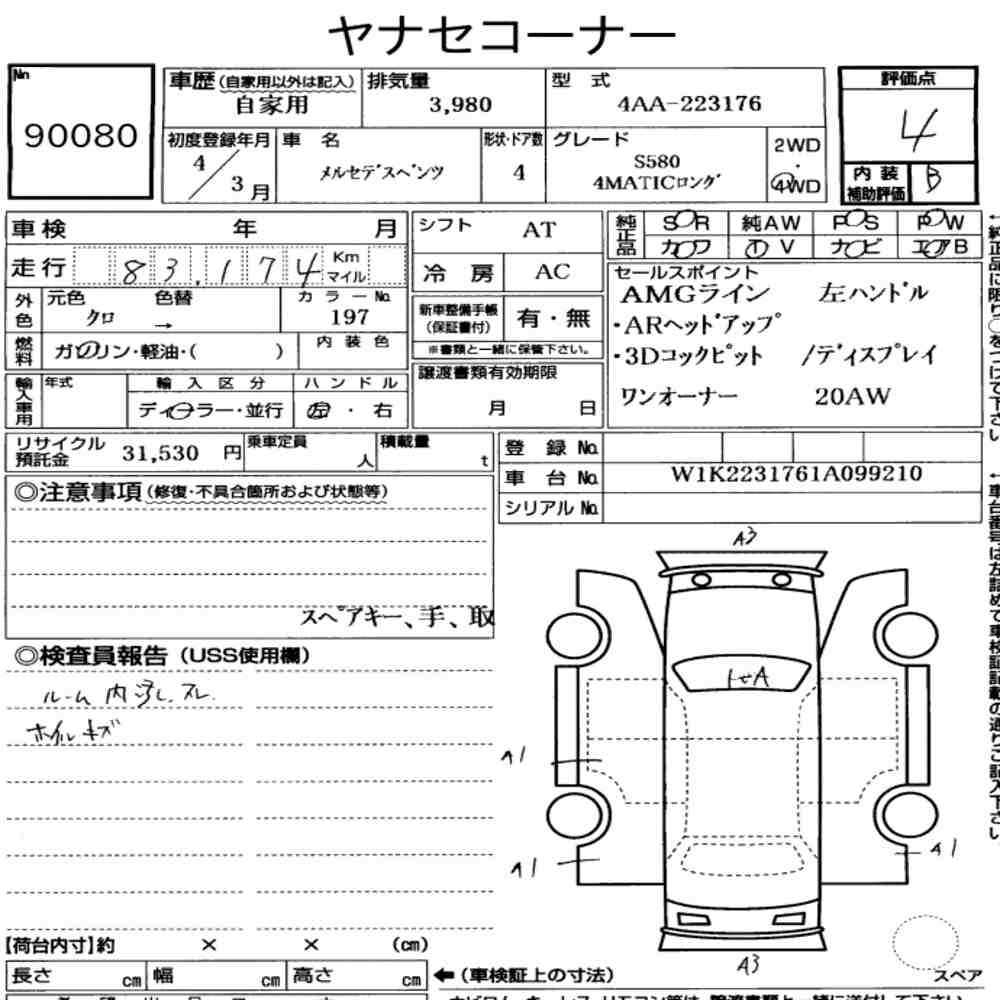 ヤナセコーナー
No. 90080
車歴 (自家用以外は記入) 排気量 型 式 評価点
自家用 3,980 4AA-223176 4
初度登録年月 車 名 形状・ドア数 グレード 2WD
4/3月 メルセデスベンツ 4 S580 ・ 4WD
4MATICロング
内装補助評価 B
車検 年 月 シフト AT 純正品 SOR 純AW POS POW
カワ V ナビ エアB
走行 83,174 Km マイル 冷 房 AC
セールスポイント
AMGライン 左ハンドル
・ARヘッドアップ
・3Dコックピット /ディスプレイ
ワンオーナー 20AW
外色 元色 色替 カラーNo.
クロ → 197
新車整備手帳(保証書付) 有・無
※書類と一緒に保管下さい。
燃料 ガソリン・軽油・( ) 内 装 色
譲渡書類有効期限
月 日
輸入車用 年式 輸 入 区 分 ハ ン ド ル
ディーラー・並行 左 ・ 右
リサイクル預託金 31,530 円 乗車定員 人 積載量 t
登 録 No.
車 台 No. W1K2231761A099210
シリアル No.
◎注意事項 (修復・不具合箇所および状態等)
スペアキー、手、取
◎検査員報告 (USS使用欄)
ルーム内汚レ.スレ.
ホイルキズ
A3
A1
A1
A1
A3
スペア
【荷台内寸】約 × × (cm)
長さ cm 幅 cm 高さ cm
←(車検証上の寸法)
←純正品に限り○をつけて下さい。
←車台番号は左詰めで車検証記載の通りご記入下さい。